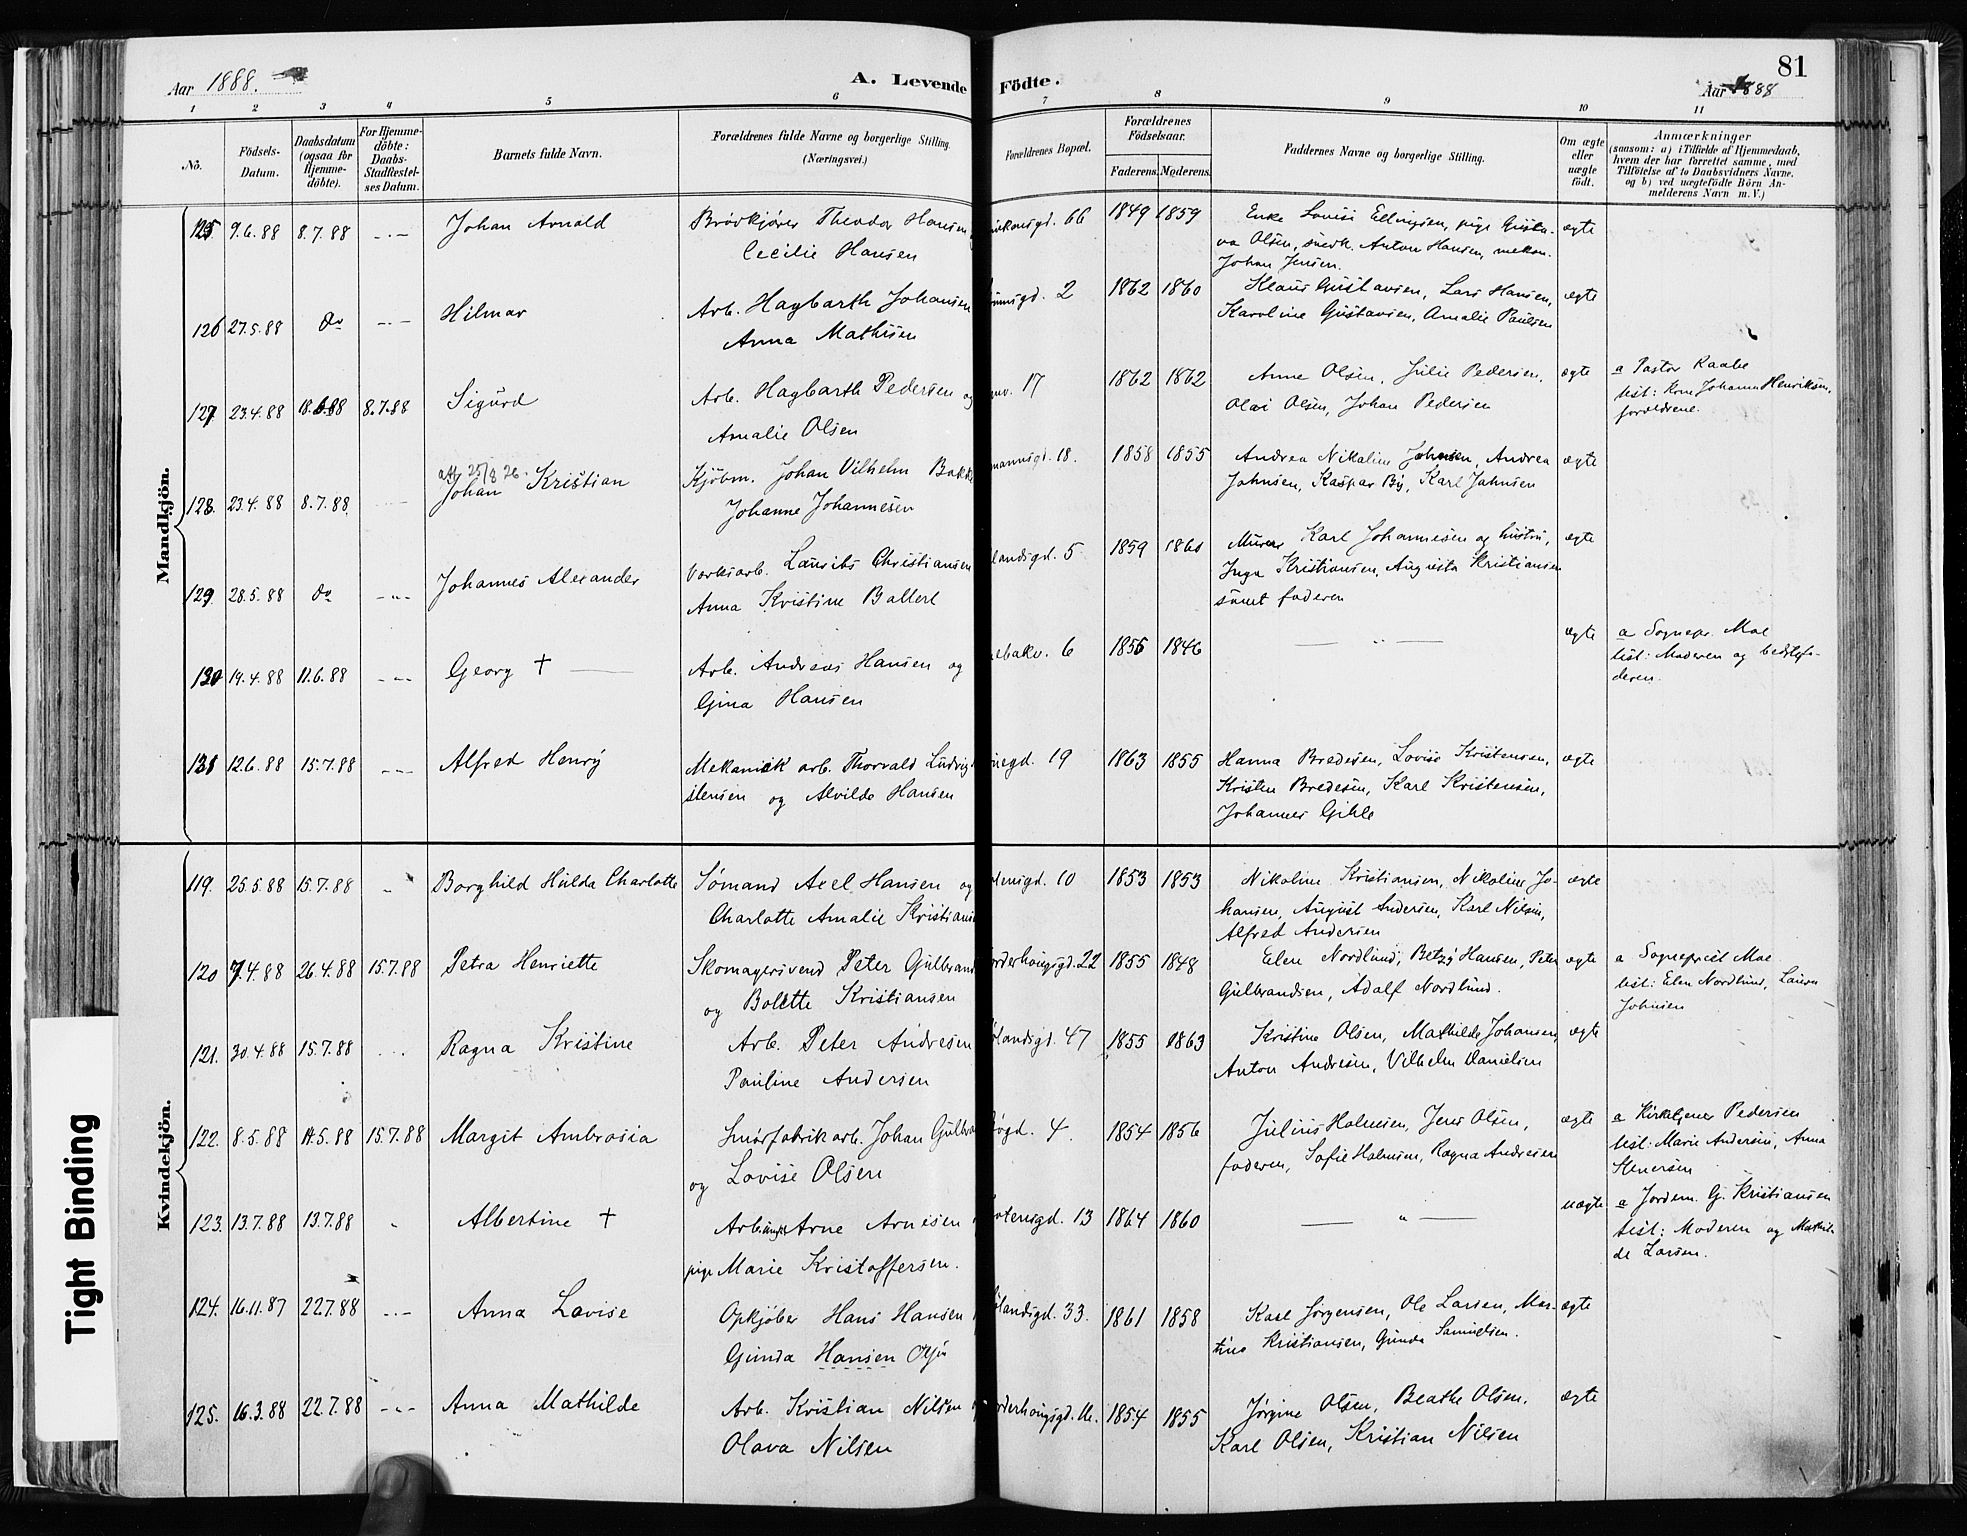 Aar 1888.
A. Levende Födte.
Aar 1888
81
1 2 3 4 5 6 7 8 9 10 11
No.
Födsels-
Datum.
Daabsdatum
(ogsaa for
Hjemme-
döbte).
For Hjemme-
döbte:
Daabs-
Stadfæstel-
ses Datum.
Barnets fulde Navn.
Forældrenes fulde Navne og borgerlige Stilling
(Næringsvei.)
Forældrenes Bopæl.
Forældrenes
Födselsaar.
Faderens.
Moderens.
Faddernes Navne og borgerlige Stilling.
Om ægte
eller
uægte
født.
Anmærkninger
(saasom: a) i Tilfælde af Hjemmedaab,
hvem der har forrettet samme, med
Tilföielse af to Daabsvidners Navne.
og b) ved uægtefödte Börn An-
melderens Navn m. V.)
Mandkjön.
125. 9.6.88 8.7.88 -.- Johan Arnold
Brødkjører Theodor Hansen
Cecilie Hansen
66 1849 1859
Enke Lovise Ellingsen, pige Gusta-
va Olsen, snedk. Anton Hansen, mekan.
Johan Jensen.
ægte
126 27.5.88 do -.- Hilmar
Arb. Hagbarth Johansen
Anna Mathisen
2 1862 1860
Klaus Gustavsen, Lars Hansen,
Karoline Gustavsen, Amalie Paulsen
ægte
127 23.4.88 18.6.88 8.7.88 Sigurd
Arb. Hagbarth Pedersen og
Amalie Olsen
17 1862 1862
Anne Olsen, Julie Pedersen,
Olai Olsen, Johan Pedersen
ægte
a Pastor Raabe
test: Kone Johanne Henriksen,
forældrene.
128. 23.4.88 8.7.88 att 25/8 26.
Johan Kristian
Kjøbm. Johan Vilhelm Bakke
Johanne Johannesen
mannsgd. 18. 1858 1855
Andrea Nikoline Johnsen, Andrea
Johnsen, Kaspar By, Karl Johnsen
ægte
129. 28.5.88 do -.- Johannes Alexander
Værksarb. Laurits Christiansen
Anna Kristine Ballert
landsgd. 5 1859 1860
Murer Karl Johannesen og hustru,
Inga Kristiansen, Augusta Kristiansen
samt faderen
ægte
130 19.4.88 11.6.88 -.- Georg †
Arb. Andreas Hansen og
Gina Hansen
ebakv. 6 1856 1846
— " —
ægte
a Sognepr. Moe
test: Moderen og bedstefa-
deren.
131 12.6.88 15.7.88 -.- Alfred Henry
Mekanisk arb. Thorvald Ludvig
stensen og Alvilde Hansen
egd. 19 1863 1855
Hanna Bredesen, Lovise Kristensen,
Kristen Bredesen, Karl Kristensen,
Johannes Gihle
ægte
Kvindekjön.
119. 25.5.88 15.7.88 Borghild Hulda Charlotte
Sømand Axel Hansen og
Charlotte Amalie Kristians
tensgd. 10 1853 1853
Nikoline Kristiansen, Nikoline Jo-
hansen, August Andersen, Karl Nilsen,
Alfred Andersen
ægte
120 7.4.88 26.4.88 15.7.88 Petra Henriette
Skomagersvend Peter Gulbrand
og Bolette Kristiansen
orderhougsgd. 22 1855 1848
Elen Nordlund, Betzy Hansen, Peter
Gulbrandsen, Adolf Nordlund.
ægte
a Sogneprest Moe
test: Elen Nordlund, Laura
Johnsen
121. 30.4.88 15.7.88 ... Ragna Kristine
Arb. Peter Andresen
Pauline Andersen
ølandsgd. 47 1855 1863
Kristine Olsen, Mathilde Johansen,
Anton Andresen, Vilhelm Danielsen
ægte
122. 8.5.88 14.5.88 15.7.88 Margit Ambrosia
Smørfabrikarb. Johan Gulbra
og Lovise Olsen
øgd. 4. 1854 1856
Julius Holmsen, Jens Olsen,
faderen, Sofie Holmsen, Ragna Andresen
ægte
a Kirketjener Pedersen
test: Marie Andersen, Anna
Stenersen
123. 13.7.88 13.7.88 Albertine †
Arb. ungk. Arne Arnesen
pige Marie Kristoffersen.
otensgd. 13 1864 1860
— " —
uægte
a Jordem. G. Kristiansen
test: Moderen og Mathil-
de Larsen.
124. 16.11.87 22.7.88 -.- Anna Lovise
Opkjøber Hans Hansen
Gunda Hansen
ølandsgd. 33. 1861 1858
Karl Jørgensen, Ole Larsen, Mar-
tine Kristiansen, Gunda Samuelsen.
ægte
125. 16.3.88 22.7.88 -.- Anna Mathilde
Arb. Kristian Nilsen
Olava Nilsen
orderhougsgd. 16. 1854 1855
Jørgine Olsen, Beathe Olsen,
Karl Olsen, Kristian Nilsen
ægte
Tight Binding